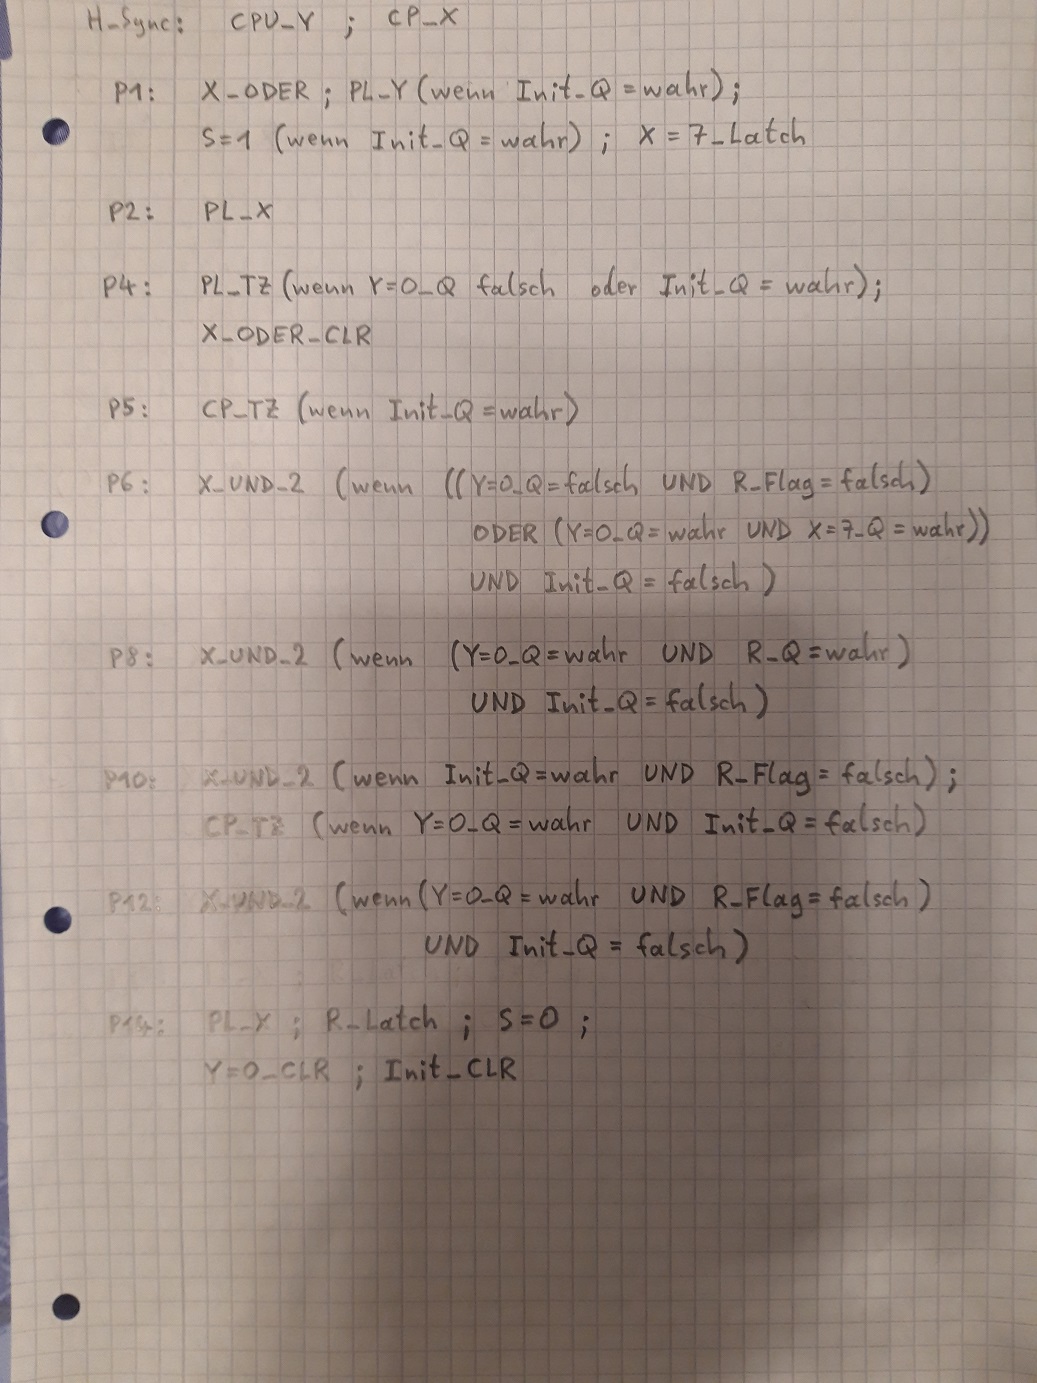 H_Sync: CPU_Y ; CP_X
P1: X_ODER ; PL_Y (wenn Init_Q = wahr) ;
S=1 (wenn Init_Q = wahr) ; X = 7_Latch
P2: PL_X
P4: PL_TZ (wenn Y=0_Q falsch oder Init_Q = wahr) ;
X_ODER_CLR
P5: CP_TZ (wenn Init_Q = wahr)
P6: X_UND_2 (wenn ((Y=0_Q = falsch UND R_Flag = falsch)
ODER (Y=0_Q = wahr UND X=7_Q = wahr))
UND Init_Q = falsch )
P8: X_UND_2 (wenn (Y=0_Q = wahr UND R_Q = wahr )
UND Init_Q = falsch )
P10: X_UND_2 (wenn Init_Q = wahr UND R_Flag = falsch) ;
CP_TZ (wenn Y=0_Q = wahr UND Init_Q = falsch)
P12: X_UND_2 (wenn (Y=0_Q = wahr UND R_Flag = falsch )
UND Init_Q = falsch )
P14: PL_X ; R_Latch ; S=0 ;
Y=0_CLR ; Init_CLR